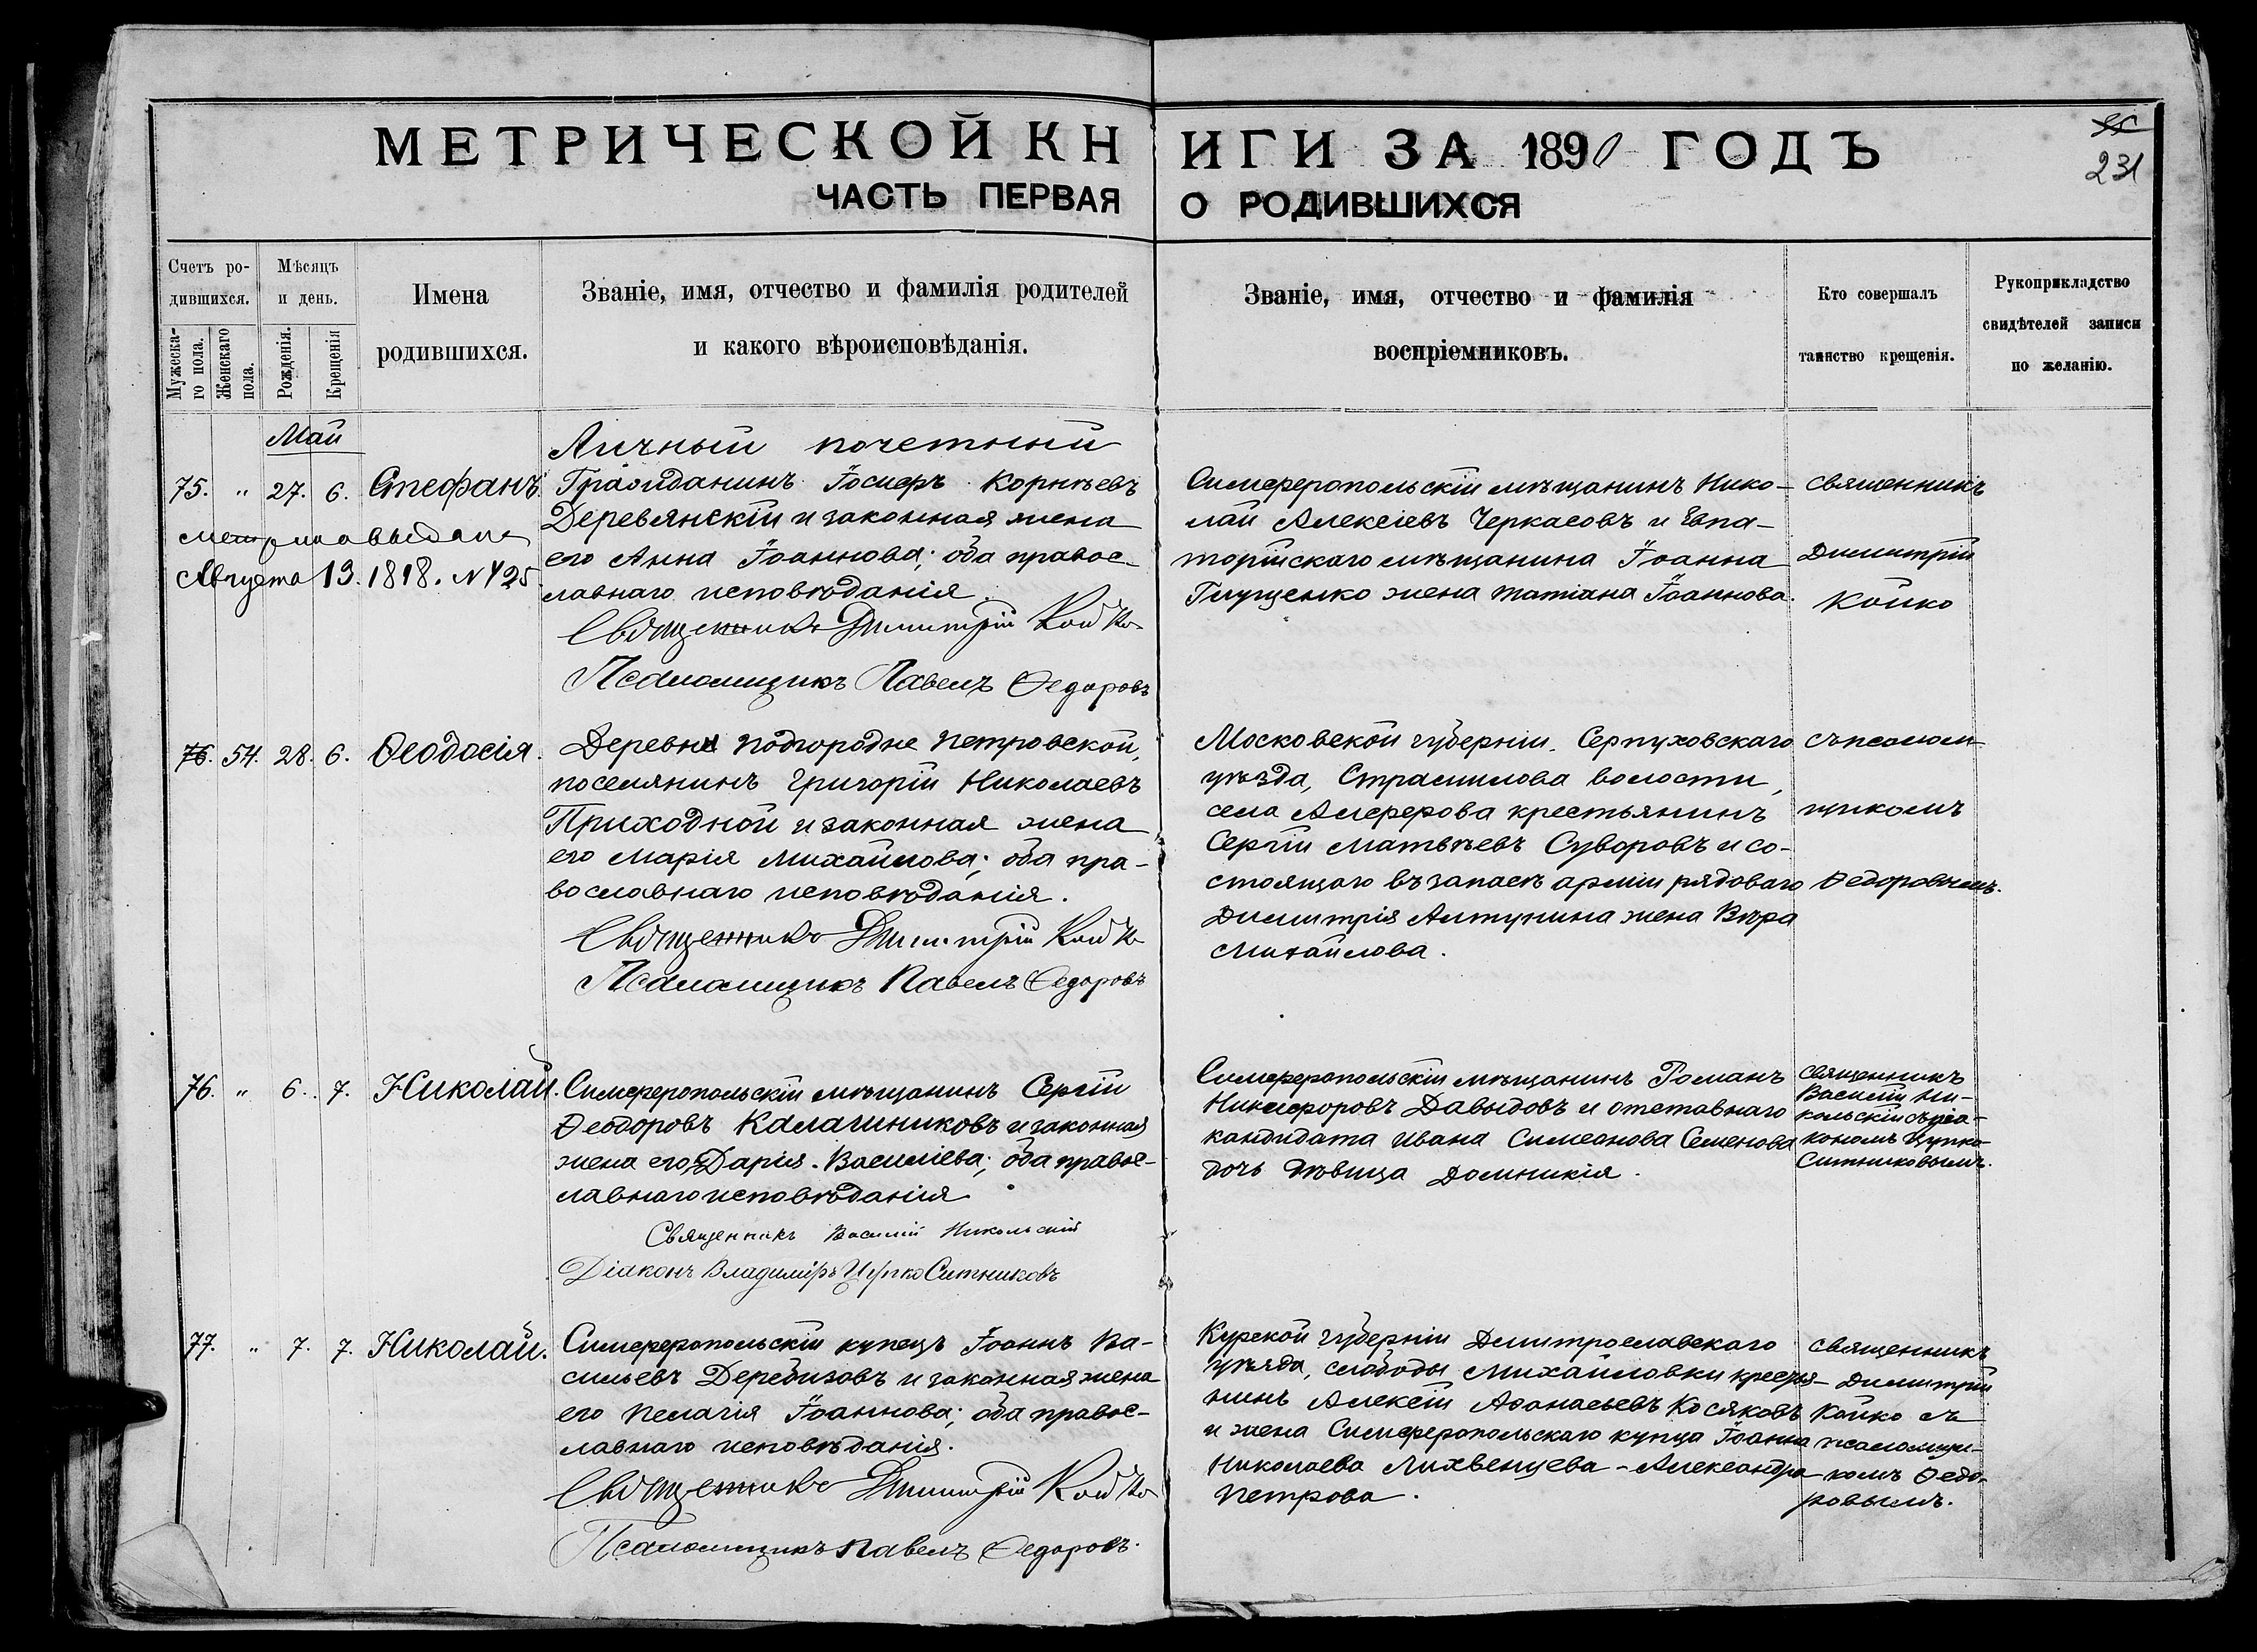 МЕТРИЧЕСКОЙ КНИГИ ЗА 1890 ГОДЪ
231
ЧАСТЬ ПЕРВАЯ О РОДИВШИХСЯ
Счетъ ро-
дившихся.
Мужеска-
го пола.
Женскаго
пола.
Мѣсяцъ
и день.
Рожденія.
Крещенія
Имена
родившихся.
Званіе, имя, отчество и фамилія родителей
и какого вѣроисповѣданія.
Званіе, имя, отчество и фамилія
воспріемниковъ.
Кто совершалъ
таинство крещенія.
Рукоприкладство
свидѣтелей записи
по желанію.
Май
75. " 27. 6. Стефанъ.
метрика выдана
Августа 13. 1818. N 425
Личный почетный
Гражданинъ Іосифъ Корнѣевъ
Деревянскій и законная жена
его Анна Іоаннова; оба правос-
лавнаго исповѣданія.
Священникъ Димитрій Койко
Псаломщикъ Павелъ Ѳедоровъ
Симферопольскій мѣщанинъ Нико-
лай Алексіевъ Черкасовъ и Евпа-
торійскаго мѣщанина Іоанна
Глущенко жена Татіана Іоаннова.
Священникъ
Димитрій
Койко
76. 54. 28. 6. Ѳеодосія.
Деревни Подгородне Петровской,
поселянинъ Григорій Николаевъ
Приходной и законная жена
его Марія Михайлова; оба пра-
вославнаго исповѣданія.
Священникъ Димитрій Койко
Псаломщикъ Павелъ Ѳедоровъ
Московской губерніи. Серпуховскаго
уѣзда, Страмилова волости,
села Алферова крестьянинъ
Сергій Матвѣевъ Суворовъ и со-
стоящаго въ запасѣ арміи рядоваго
Димитрія Алтунина жена Вѣра
Михайлова.
съ псалом-
щикомъ
Ѳедоровымъ.
76. " 6. 7. Николай.
Симферопольскій мѣщанинъ Сергій
Ѳеодоровъ Калашниковъ и законная
жена его, Дарія Василіева; оба правос-
лавнаго исповѣданія
Священникъ Василій Никольскій
Діаконъ Владиміръ Цупко Ситниковъ
Симферопольскій мѣщанинъ Романъ
Никифоровъ Давыдовъ и отставнаго
кандидата Ивана Симеонова Семенова
дочь дѣвица Домникія.
Священникъ
Василій Ни-
кольскій съ діа-
кономъ Цупко
Ситниковымъ.
77. " 7. 7. Николай.
Симферопольскій купецъ Іоаннъ Ва-
сильевъ Деребизовъ и законная жена
его Пелагія Іоаннова; оба правос-
лавнаго исповѣданія.
Священникъ Димитрій Койко
Псаломщикъ Павелъ Ѳедоровъ.
Курской губерніи Дмитрославскаго
уѣзда, слободы Михайловки кресья-
нинъ Алексій Аѳанасьевъ Косяковъ
и жена Симферопольскаго купца Іоанна
Николаева Лихвенцева - Александра
Петрова.
Священникъ
Димитрій
Койко съ
псаломщи-
комъ Ѳедо-
ровымъ.